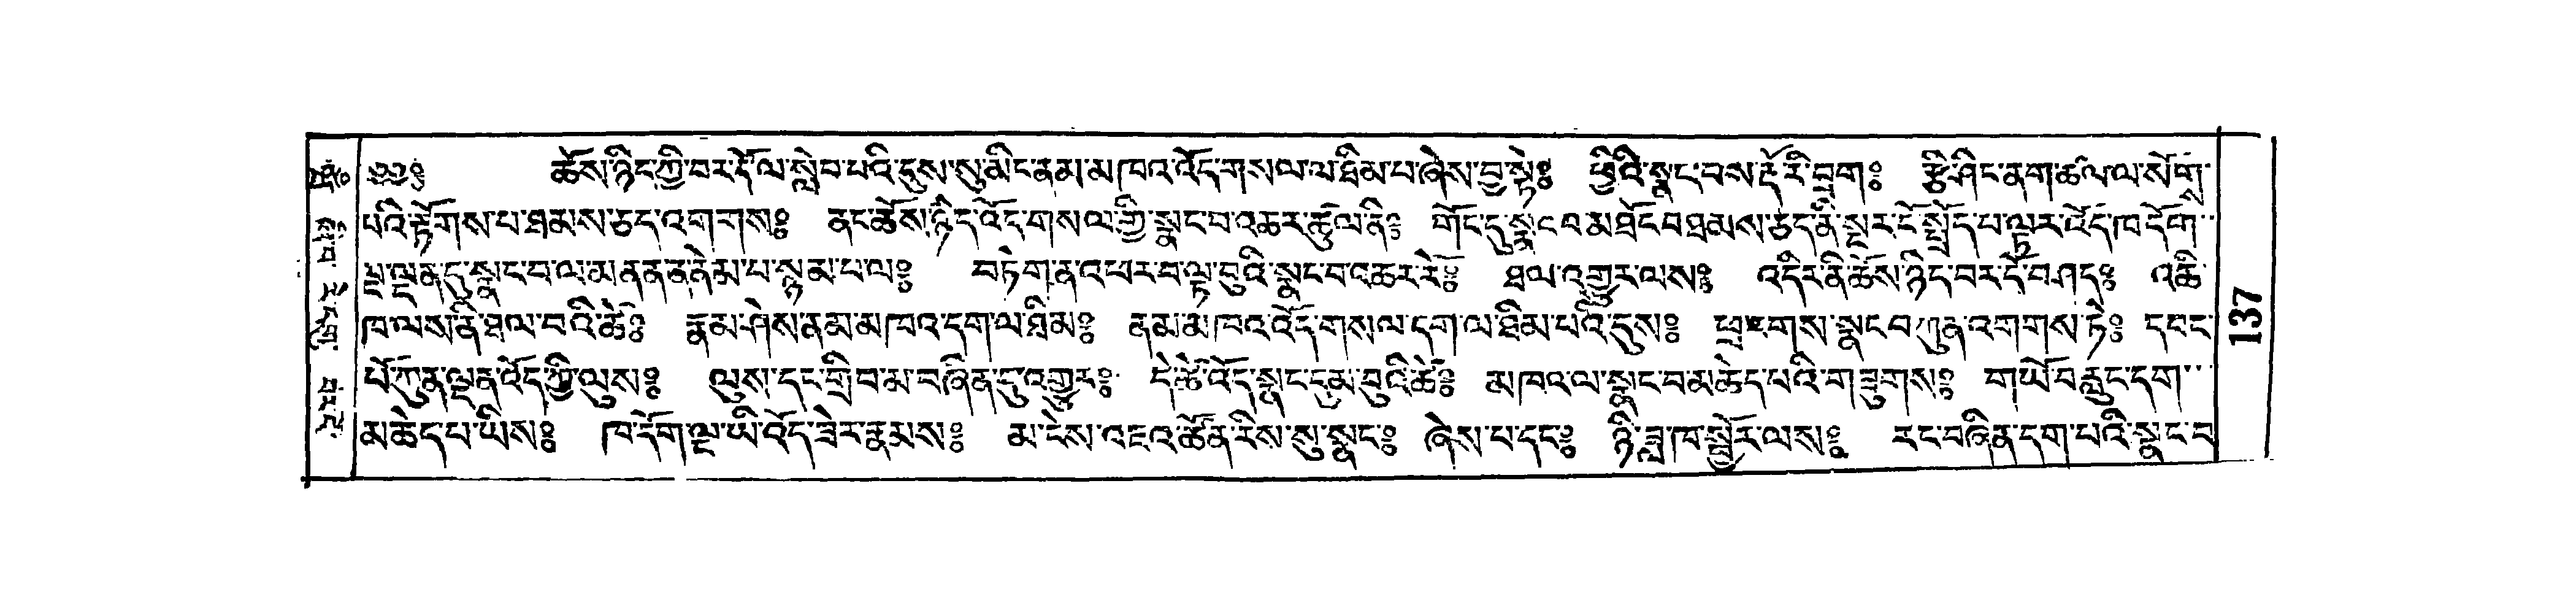 ༄༅༔ ཆོས་ཉིད་ཀྱི་བར་དོ་ལ་སླེབ་པའི་དུས་སུ་མིང་ནམ་མཁའ་འོད་གསལ་ལ་ཐིམ་པ་ཞེས་བྱ་སྟེ༔ ཕྱིའི་སྣང་བས་རྡོ་རི་བྲག༔ རྩི་ཤིང་ནགས་ཚལ་ལ་སོགས་
པའི་རྟོགས་པ་ཐམས་ཅད་འགགས༔ ནང་ཆོས་ཉིད་འོད་གསལ་གྱི་སྣང་བ་འཆར་ཚུལ་ནི༔ གོང་དུ་སྣང་བ་མཐོང་བ་ཐམས་ཅད་ནི་སྔར་ངོ་སྤྲོད་པ་ལྟར་འོད་ཁ་དོག་
ལྔ་ལྡན་དུ་སྣང་བ་ལ་མ་ནན་ན་ཉེམ་པ་སྙམ་པ་ལ༔ བཏེག་ན་འཕར་བ་ལྟ་བུའི་སྣང་བ་འཆར་རོ༔ ཐལ་འགྱུར་ལས༔ འདིར་ནི་ཆོས་ཉིད་བར་དོ་བཤད༔ འཆི་
ཁ་ལས་ནི་ཐལ་བའི་ཚེ༔ རྣམ་ཤེས་ནམ་མཁའ་དག་ལ་ཐིམ༔ ནམ་མཁའ་འོད་གསལ་དག་ལ་ཐིམ་པའི་དུས༔ ཕྲ་རགས་སྣང་བ་ཀུན་འགགས་ཏེ༔ དབང་
པོ་ཀུན་ལྡན་འོད་ཀྱི་ལུས༔ ལུས་དང་གྲིབ་མ་བཞིན་དུ་འགྱུར༔ དེ་ཚེ་འོད་སྣང་དུམ་བུའི་ཚེ༔ མཁའ་ལ་སྣང་བ་མཆེད་པའི་གཟུགས༔ གཡོ་བ་རླུང་དག་
མཆེད་པ་ཡིས༔ ཁ་དོག་ལྔ་ཡི་འོད་ཟེར་རྣམས༔ མ་ངེས་འཇའ་ཚོན་རིས་སུ་སྣང༔ ཞེས་པ་དང༔ ཉི་ཟླ་ཁ་སྦྱོར་ལས༔ རང་བཞིན་དག་པའི་སྣང་བ